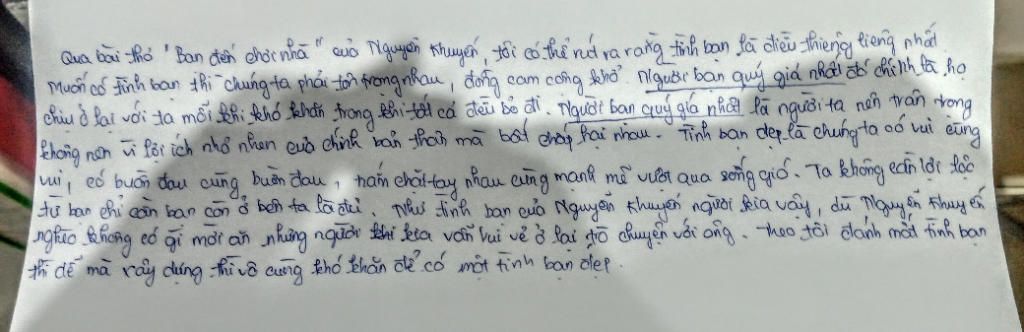 Qua bài thơ "Bạn đến chơi nhà" của Nguyễn Khuyến, tôi có thể rút ra rằng tình bạn là điều thiêng liêng nhất
Muốn có tình bạn thì chúng ta phải tôn trọng nhau, đồng cam cộng khổ. Người bạn quý giá nhất đó chính là họ
chịu ở lại với ta mỗi khi khó khăn trong khi tất cả đều bỏ đi. Người bạn quý giá nhất là người ta nên trân trọng
không nên vì lợi ích nhỏ nhen của chính bản thân mà bất chấp hại nhau. Tình bạn đẹp là chúng ta có vui cùng
vui, có buồn đau cùng buồn đau, nắm chặt tay nhau cùng mạnh mẽ vượt qua sóng gió. Ta không cần lợi lộc
từ bạn chỉ cần bạn còn ở bên ta là đủ. Như tình bạn của Nguyễn Khuyến người kia vậy, dù Nguyễn Khuyến
nghèo không có gì mời ăn nhưng người khi kia vẫn vui vẻ ở lại trò chuyện với ông. Theo tôi đánh mất tình bạn
thì dễ mà xây dựng thì vô cùng khó khăn để có một tình bạn đẹp.